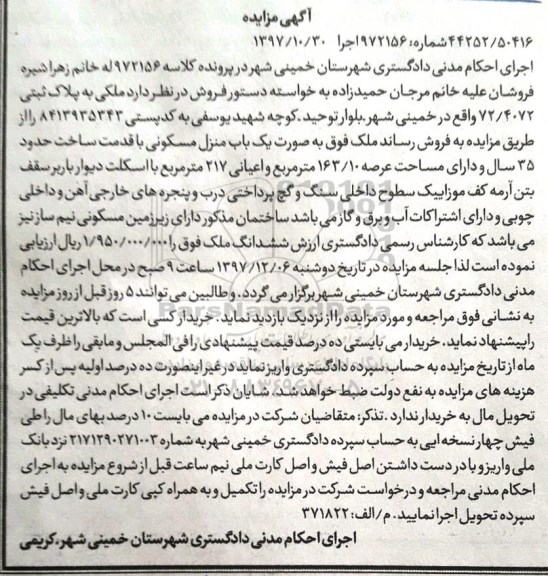 آگهی مزایده
۴۴۲۵۲/۵۰۴۱۶شماره: ۹۷۲۱۵۶اجرا   ۱۳۹۷/۱۰/۳۰
اجرای احکام مدنی دادگستری شهرستان خمینی شهر در پرونده کلاسه ۹۷۲۱۵۶له خانم زهرا شیره
فروشان علیه خانم مرجان حمیدزاده به خواسته دستور فروش در نظر دارد ملکی به پلاک ثبتی
۷۲/۴۰۷۲ واقع در خمینی شهر.بلوار توحید.کوچه شهید یوسفی به کدپستی ۸۴۱۳۹۳۵۳۴۳ را از
طریق مزایده به فروش رساند ملک فوق به صورت یک باب منزل مسکونی با قدمت ساخت حدود
۳۵ سال و دارای مساحت عرصه ۱۶۳/۱۰ مترمربع و اعیانی ۲۱۷ مترمربع با اسکلت دیوار باربر سقف
بتن آرمه کف موزاییک سطوح داخلی سنگ و گچ پرداختی درب و پنجره های خارجی آهن و داخلی
چوبی و دارای اشتراکات آب و برق و گاز می باشد ساختمان مذکور دارای زیرزمین مسکونی نیم ساز نیز
می باشد که کارشناس رسمی دادگستری ارزش ششدانگ ملک فوق را ۱/۹۵۰/۰۰۰/۰۰۰ ریال ارزیابی
نموده است لذا جلسه مزایده در تاریخ دوشنبه ۱۳۹۷/۱۲/۰۶ ساعت ۹ صبح در محل اجرای احکام
مدنی دادگستری شهرستان خمینی شهر برگزار می گردد. و طالبین می توانند ۵ روز قبل از روز مزایده
به نشانی فوق مراجعه و مورد مزایده را از نزدیک بازدید نماید. خریدار کسی است که بالاترین قیمت
را پیشنهاد نماید. خریدار می بایستی ده درصد قیمت پیشنهادی را فی المجلس و مابقی را ظرف یک
ماه از تاریخ مزایده به حساب سپرده دادگستری واریز نماید در غیر اینصورت ده درصد اولیه پس از کسر
هزینه های مزایده به نفع دولت ضبط خواهد شد. شایان ذکر است اجرای احکام مدنی تکلیفی در
تحویل مال به خریدار ندارد .تذکر: متقاضیان شرکت در مزایده می بایست ۱۰ درصد بهای مال را طی
فیش چهار نسخه ایی به حساب سپرده دادگستری خمینی شهر به شماره ۲۱۷۱۲۹۰۲۷۱۰۰۳ نزد بانک
ملی واریز و با در دست داشتن اصل فیش و اصل کارت ملی نیم ساعت قبل از شروع مزایده به اجرای
احکام مدنی مراجعه و درخواست شرکت در مزایده را تکمیل و به همراه کپی کارت ملی و اصل فیش
سپرده تحویل اجرا نمایید. م/الف: ۳۷۱۸۲۲
اجرای احکام مدنی دادگستری شهرستان خمینی شهر.کریمی